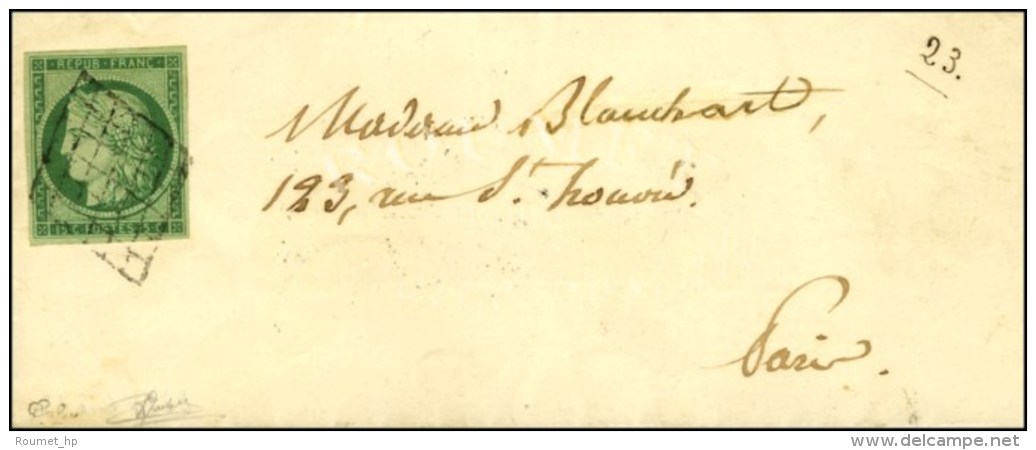 REPUB·FRANC·
15 C·POSTES·15 C·
23.
Madame Blanchart,
123, rue St. honoré.
Paris.
Roumet_hp
www.delcampe.net